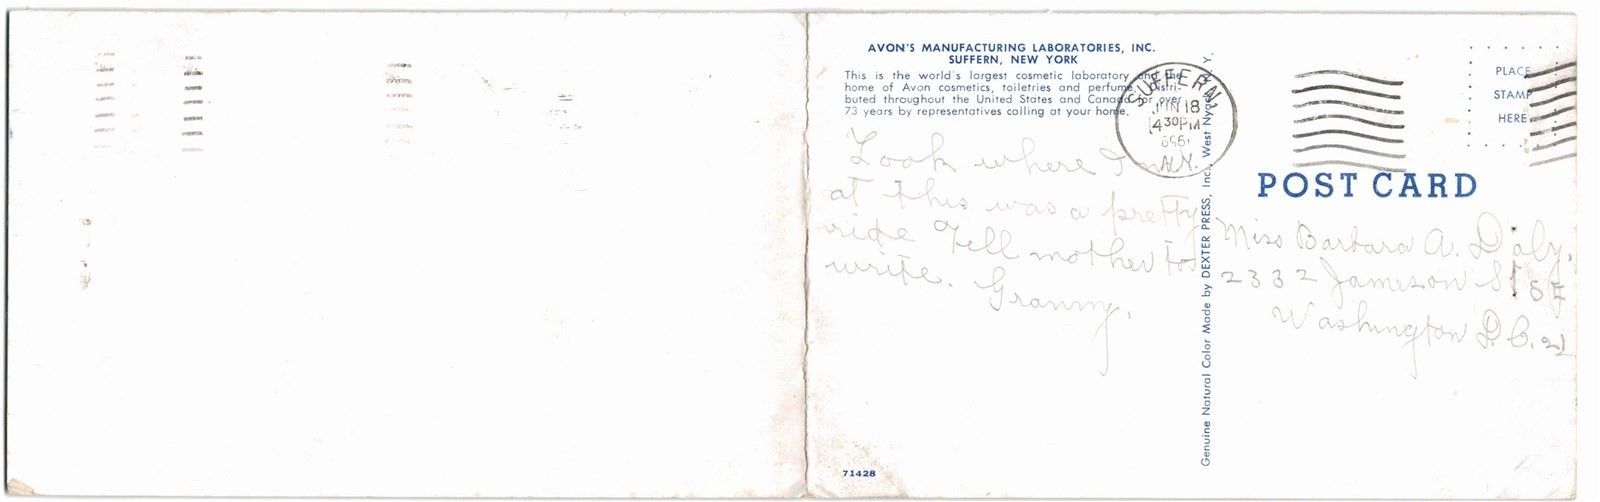 AVON'S MANUFACTURING LABORATORIES, INC.
SUFFERN, NEW YORK
This is the world's largest cosmetic laboratory and the
home of Avon cosmetics, toiletries and perfume, distri-
buted throughout the United States and Canada for over
73 years by representatives calling at your home.
Look where I
at this was a pretty
ride Tell mother to
write. Granny.
71428
Genuine Natural Color Made by DEXTER PRESS, Inc., West Nyack, N. Y.
SUFFERN
JUN 18
430PM
N.Y.
PLACE
STAMP
HERE
POST CARD
Miss Barbara A. Daly,
2332 Jameson St SE
Washington D.C. 21